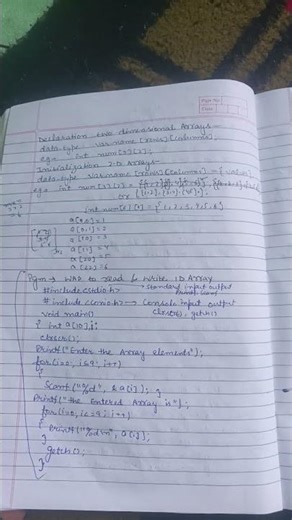 Page No.
Date
Declaration two dimensional Arrays -
data type var name [rows] [columns];
eg - int num [3][2];
Initialization 2-D Arrays -
data type varname [rows] [columns] = { value };
eg - int num [3][2] =
or { {1,2}, {3,4}, {5,6} };
int num [3][2] = {1, 2, 3, 4, 5, 6}
a[0,0] = 1
a[0,1] = 2
a[1,0] = 3
a[1,1] = 4
a[2,0] = 5
a[2,1] = 6
Pgm → WAP to read & write 1D ARRAY
#include<stdio.h> → Standard input output
#include<conio.h> → Console input output
clrscr(), getch()
void main()
{ int a[10], i;
clrscr();
Printf("Enter the Array elements");
for(i=0; i≤9; i++)
{
Scanf("%d", &a[i]); }
Printf("the Entered Array is");
for(i=0; i<=9; i++)
{ printf("%d\n", a[i]);
}
getch();
}